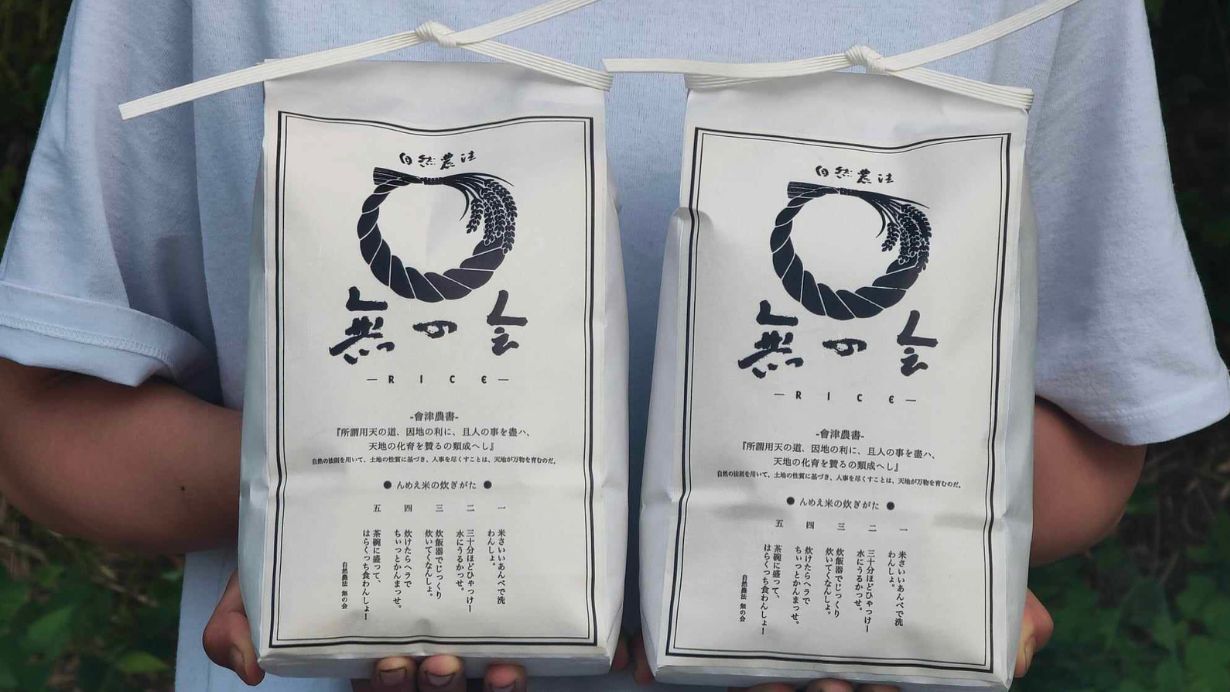 自然農法
無の会
— RICE —
-會津農書-
『所謂用天の道、因地の利に、且人の事を盡ハ、
天地の化育を賛るの類成へし』
自然の法則を用いて、土地の性質に基づき、人事を尽くすことは、天地が万物を育むのだ。
● んめえ米の炊ぎがた ●
一
米さいいあんべで洗
わんしょ。
二
三十分ほどひゃっけー
水にうるかっせ。
三
炊飯器でじっくり
炊いてくなんしょ。
四
炊けたらヘラで
ちぃっとかんまっせ。
五
茶碗に盛って、
はらくっち食わんしょー
自然農法 無の会
自然農法
無の会
— RICE —
-會津農書-
『所謂用天の道、因地の利に、且人の事を盡ハ、
天地の化育を賛るの類成へし』
自然の法則を用いて、土地の性質に基づき、人事を尽くすことは、天地が万物を育むのだ。
● んめえ米の炊ぎがた ●
一
米さいいあんべで洗
わんしょ。
二
三十分ほどひゃっけー
水にうるかっせ。
三
炊飯器でじっくり
炊いてくなんしょ。
四
炊けたらヘラで
ちぃっとかんまっせ。
五
茶碗に盛って、
はらくっち食わんしょー
自然農法 無の会